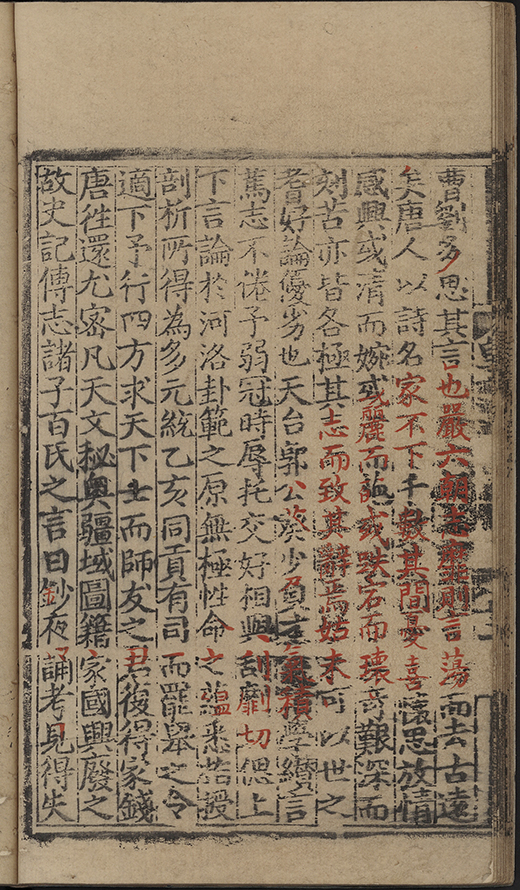 曹劉多思其言也嚴六朝志靡則言蕩而去古遠
矣唐人以詩名家不下千數其間憂喜懷思放情
感興或清而婉或麗而詭或跌宕而瓌奇艱深而
刻苦亦皆各極其志而致其辭焉姑未可以世之
耆好論優劣也天台郭公葵少負才氣積學纘言
篤志不倦予弱冠時辱托交好相與刮劘切偲上
下言論於河洛卦範之原無極性命之蘊悉
剖析所得為多元統乙亥同貢有司而罷舉之令
適下予行四方求天下士而師友之復得家錢
唐往還尤密凡天文秘奧疆域圖籍家國興廢之
故史記傳志諸子百氏之言日鈔夜誦考見得失